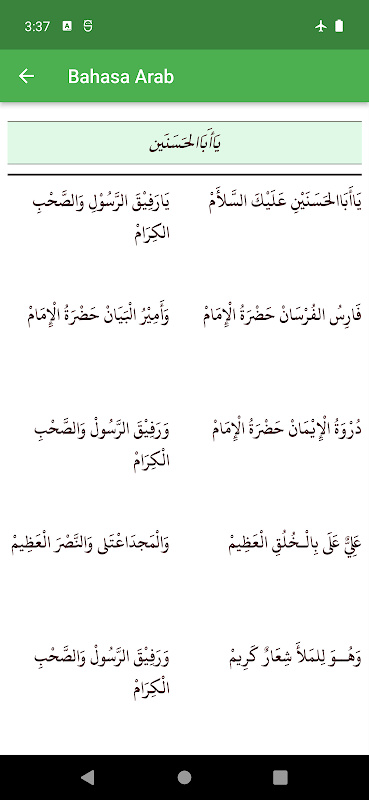 3:37
Bahasa Arab
يَاأَبَاالحَسَنَين
يَاأَبَاالحَسَنَيْنِ عَلَيْكَ السَّلاَمْ
يَارَفِيْقَ الرَّسُوْلِ وَالصَّحْبِ
الكِرَامْ
فَارِسُ الفُرْسَانْ حَضْرَةُ الْإِمَامْ
وَأَمِيْرُ الْبَيَانْ حَضْرَةُ الْإِمَامْ
دُرْوَةُ الْإِيْمَانْ حَضْرَةُ الْإِمَامْ
وَرَفِيْقَ الرَّسُولْ وَالصَّحْبِ
الْكِرَامْ
عَلِيٌّ عَلَى بِالْـخُلُقِ الْعَظِيمْ
وَالْمَجدَاعْتَلى وَالنَّصْرَ الْعَظِيمْ
وَهُـــوَ لِلمَلأَ شِعَارٌ كَرِيمْ
وَرَفِيْقَ الرَّسُولْ وَالصَّحْبِ
الْكِرَامْ